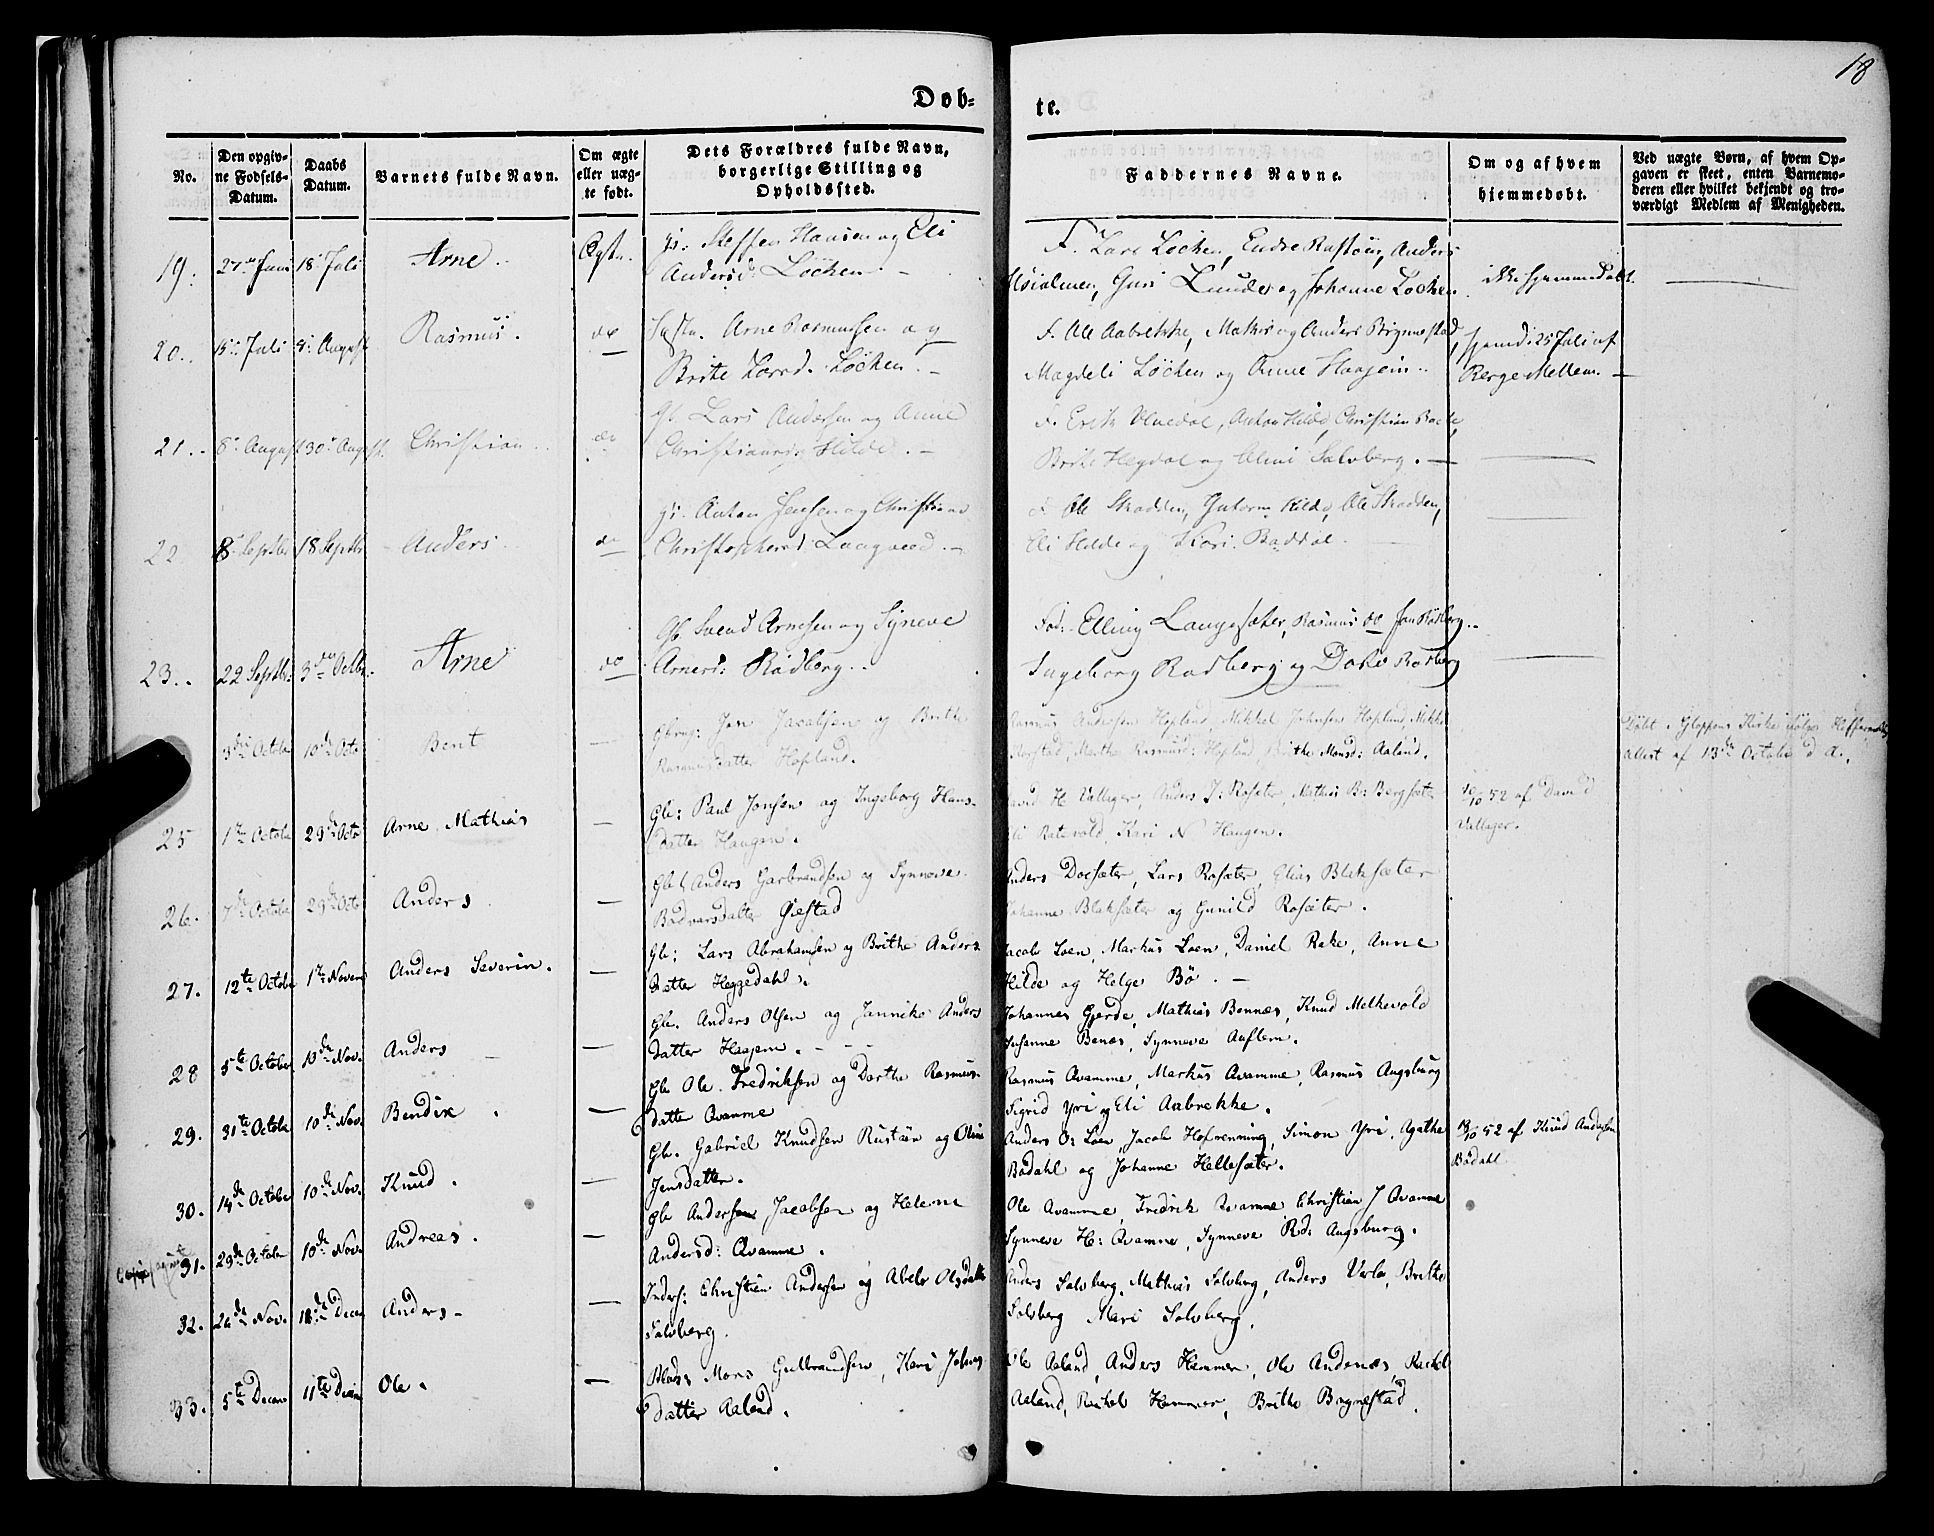 18
Døb-
te.
No.
Den opgiv-
ne Fødsels-
Datum.
Daabs
Datum.
Varnets fulde Navn.
Om ægte
eller uæg-
te født.
Dets Forældres fulde Navn,
borgerlige Stilling og
Opholdssted.
Faddernes Navne.
Om og af hvem
hjemmedøbt.
Ved uægte Børn, af hvem Op-
gaven er skeet, enten Barnemo-
deren eller hvilket bekjendt og tro-
værdigt Medlem af Menigheden.
19. 27 Juni 18 Juli Arne Ægte. Steffen Hansen og Eli
Andersd: Löchen
F. Lars Löchen, Endre Rustöin, Anders
Guri Lunde og Johanne Lochen. ikke hjemmedöbt.
20. 15 Juli 8 August Rasmus. do Arne Rasmussen og
Brite Larsd. Löchen.
F. Ole Aabrekke, Mathis og Anders Brynnestad,
Magdeli Löchen og Anne Haajem.
hjemd: 25 Juli af
Berge Mellem.
21. 8 August 30 August. Christian. do Gb. Lars Andersen og Anne
Christiansd: Hilde.
F. Erik Anton Hilde, Christian
Brite Hegdal og Solvberg.
22 8 Septbr 18 Septbr Anders do Anton Jensen og Christiane
Christophersd:
F. Ole Skadden, Gutorm Hilde, Ole Skadden,
Eli Hilde og Kari Bøddal.
23. 22 Septbr. 3 Octbr. Arne do Gb. Svend Arnesen og Syneve
Arnesd: Rödberg.
Fad: Elling Langesæter, Rasmus do Jan Rödberg.
Ingeborg Rødberg og Dorte Rødberg
3die Octobr 10de Octo Bent — Gbrmd: Jon Jacobsen og Brithe
Rasmusdatter Hopland.
Rasmus Andersen Hopland, Mikkel Johnsen Hopland, Mikkel
Myrstad, Marthe Rasmusd: Hopland, Brithe Monsd: Aaland.
Døbt i Gloppens Kirke ifølge
Attest af 13de October d. A.
25 1te Octobe 29de Octo Arne Mathias — Gbr: Paul Jonsen og Ingeborg Hans-
datter Haugen.
David H Vallager, Anders J: Rosæter, Mathis B: Bergsæter
Eli Ratevold, Kari N Haugen.
10/10 52 af David
Vallager.
26. 7de Octobe 29de Octo Anders — Gbr Anders Garbrandsen og Synneve
Bødvarsdatter Giestad
Anders Docsæter, Lars Rosæter, Elias Bleksæter
Johanne Bleksæter og Gunild Rosæter.
27. 12te Octobe 1te Novem Anders Severin. — Gbr: Lars Abrahamsen og Brithe Anders
datter Heggedahl.
Jacob Loen, Markus Loen, Daniel Rake, Anne
Hilde og Helge Bø.
28 5te October 10de Nov. Anders — Gbr. Anders Olsen og Jannike Anders
datter Haajem.
Johannes Gjerde, Mathias Bennæs, Knud Melkevold
Susanne Benæs, Synneve Auflem.
29. 31te Octobe 10de Nov. Bendix. — Gbr Ole Fredriksen og Dorthe Rasmus-
datter Qvamme
Rasmus Qvamme, Markus Qvamme, Rasmus Augsburg
Sigrid Yri og Eli Aabrekke.
30. 14de October 10de Nov. Knud. — Gbr. Gabriel Knudsen Rustøen og Oline
Jensdatter.
Anders O: Loen, Jacob Hofrenning, Simon Yri, Agathe
Bødahl og Johanne Hellesæter.
18/10 52 af Knud Andersen
Bødahl.
31. 29de October 10de Nov. Andreas. — Gbr Andersen Jacobsen og Helene
Andersd: Qvamme.
Ole Qvamme, Fredrik Qvamme Christian J Qvamme
Synneve H: Qvamme, Synneve Rd: Augsburg.
32. 26de Nov. 18de Decem Anders — Inders: Christian Andersen og Abele Olsdatter
Solvberg.
Anders Solvberg, Mathias Solvberg, Anders Verlo, Brithe
Solvberg Mari Solvberg.
33. 5te Decem 11te Decem Ole. — Mons Gulbrandsen, Kari Johns
datter Aaland.
Ole Aaland, Anders Hammer, Ole Andenæs, Rachel
Aaland, Rachel Hammer, Brithe Brynestad.